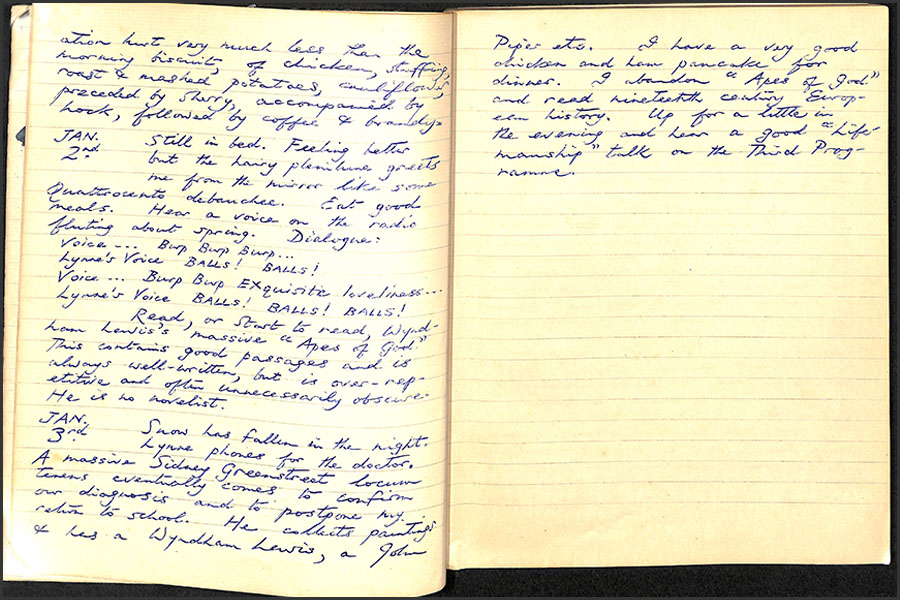 ation hurt very much less than the
morning biscuit, of chicken, stuffing,
roast & mashed potatoes, cauliflower,
preceded by sherry, accompanied by
hock, followed by coffee & brandy.
JAN. Still in bed. Feeling better
2nd but the hairy plenilune greets
me from the mirror like some
Quattrocento debauchee. Eat good
meals. Hear a voice on the radio
fluting about spring. Dialogue:
Voice ... Burp Burp Burp...
Lynne's Voice BALLS! BALLS!
Voice ... Burp Burp EXquisitic loveliness...
Lynne's Voice BALLS! BALLS! BALLS!
Read, or start to read, Wynd-
ham Lewis's massive "Apes of God"
This contains good passages and is
always well-written, but is over-rep-
etitive and often unnecessarily obscure.
He is no novelist.
JAN. Snow has fallen in the night.
3rd Lynne phones for the doctor.
A massive Sidney Greenstreet locum
tenens eventually comes to confirm
our diagnosis and to postpone my
return to school. He collects paintings
& has a Wyndham Lewis, a John
Piper etc. I have a very good
chicken and ham pancake for
dinner. I abandon "Apes of God"
and read nineteenth century Europ-
ean history. Up for a little in
the evening and hear a good "Life-
manship" talk on the Third Prog-
ramme.